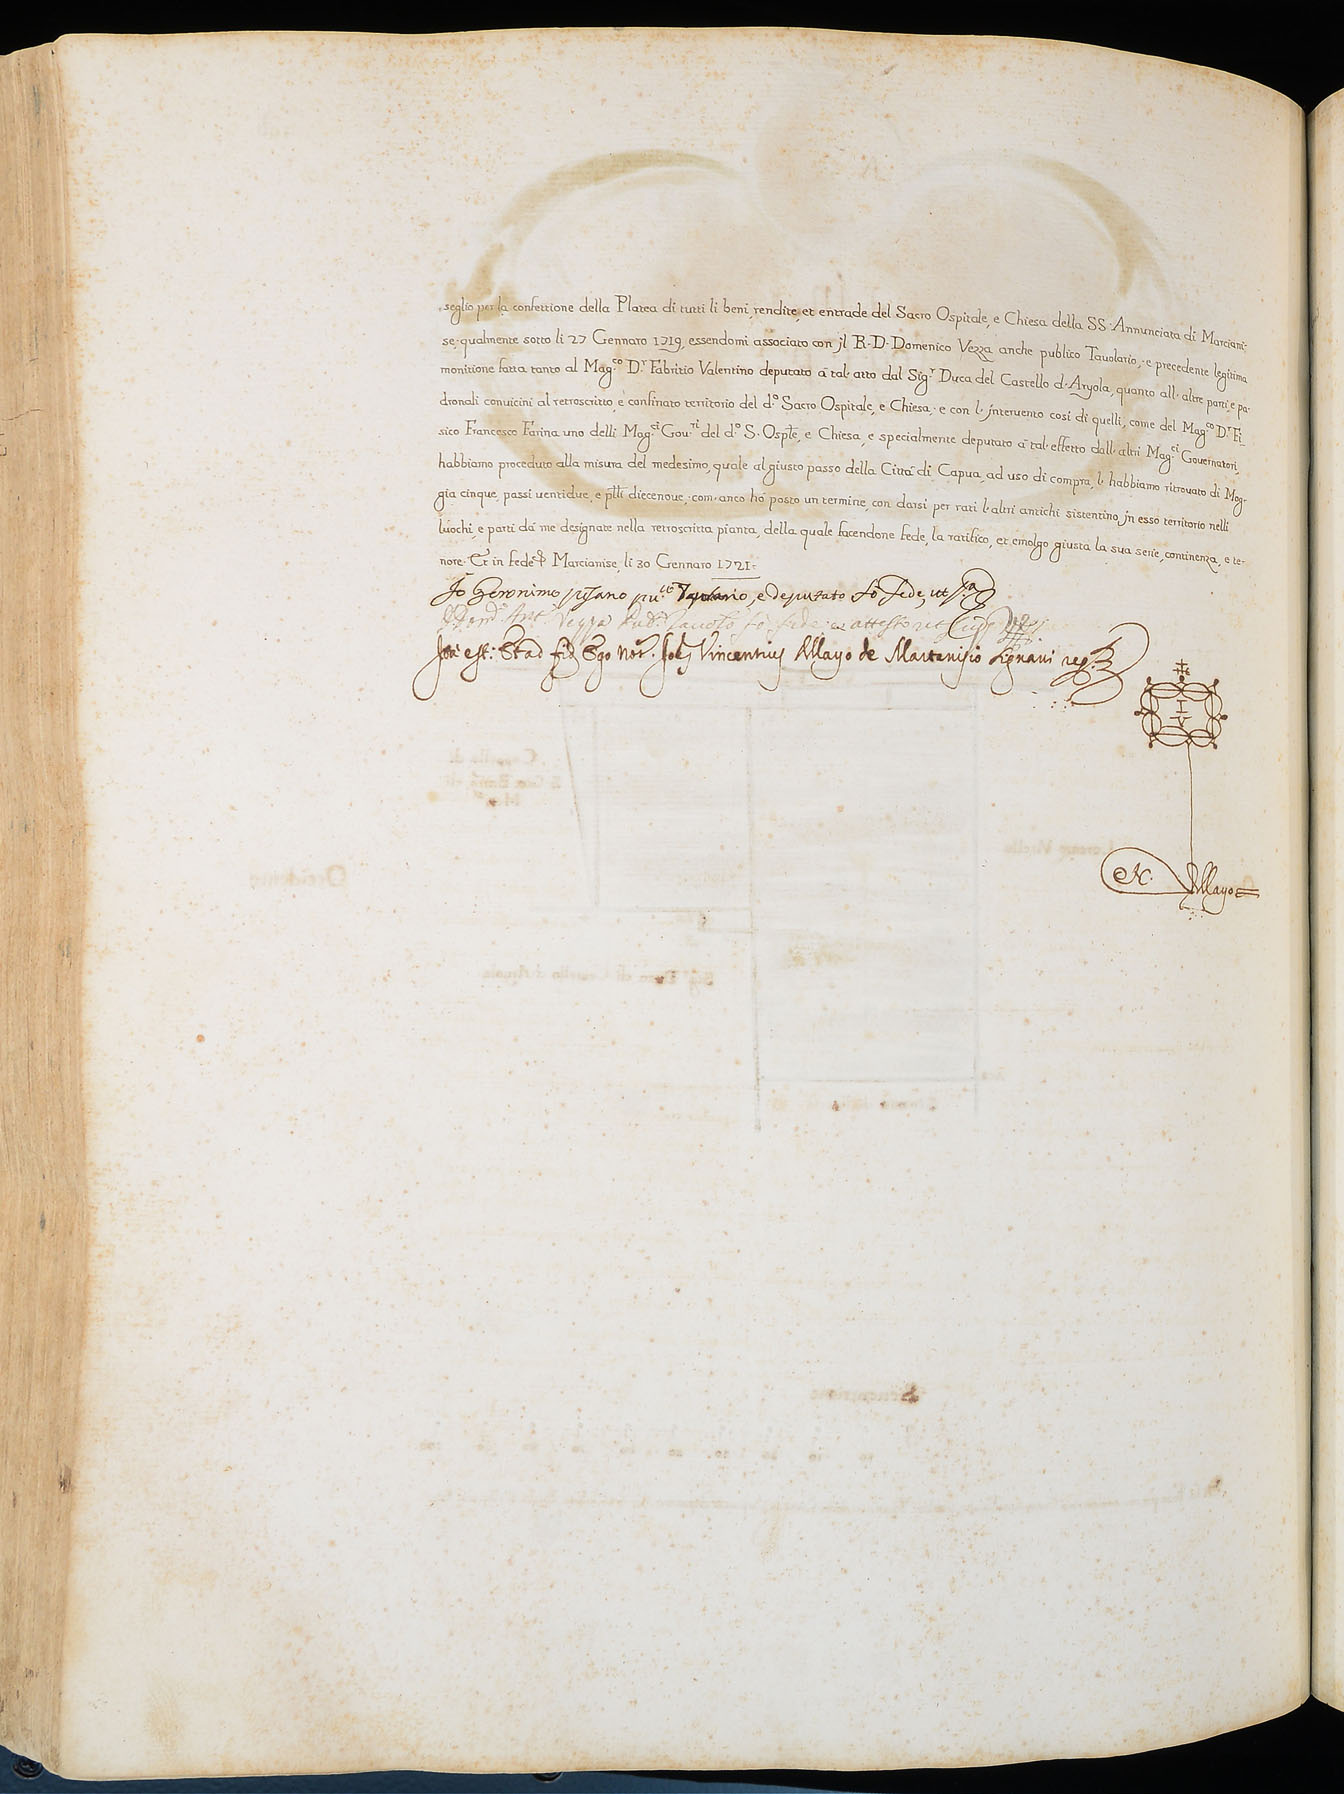 seglio per la confettione della Platea di tutti li beni, rendite, et entrade del Sacro Ospitale, e Chiesa della SS. Annunciata di Marciani-
se, qualmente sotto li 27 Gennaro 1719, essendomi associato con jl R. D. Domenico Vezza anche publico Tauolario, e precedente legitima
monitione fatta tanto al Mag.co D.r Fabritio Valentino deputato à tal' atto dal Sig.r Duca del Castello d'Aryola, quanto all' altre parti, e pa-
dronali conuicini al retroscritto, e confinato territorio del d.o Sacro Ospitale, e Chiesa, e con l' jnteruento così di quelli, come del Mag.co D.r Fi-
sico Francesco Farina uno delli Mag.ci Gou.ri del d.o S. Osple, e Chiesa, e specialmente deputato à tal' effetto dall' altri Mag.ci Gouernatori,
habbiamo proceduto alla misura del medesimo, quale al giusto passo della Città di Capua, ad uso di compra, l' habbiamo ritrouato di Mog-
gia cinque, passi uentidue, e plli diecenoue, com' anco hò posto un termine, con darsi per rati l' altri antichi sistentino jn esso territorio nelli
luochi, e parti dà me designate nella retroscritta pianta, della quale facendone fede, la ratifico, et emolgo giusta la sua serie, continenza, e te-
nore. Et in fede &. Marcianise, li 30 Gennaro 1721.
Io Geronimo pisano pu.co Tauolario, e deputato fò fede, ut s.a
Vezza Pub. Tauol.o fò fede et attesto ut
Ita est. Et ad fid. Ego Not. Joes Vincentius Mayo de Martanisio signaui reg.
I
V
N. Mayo
Occidente